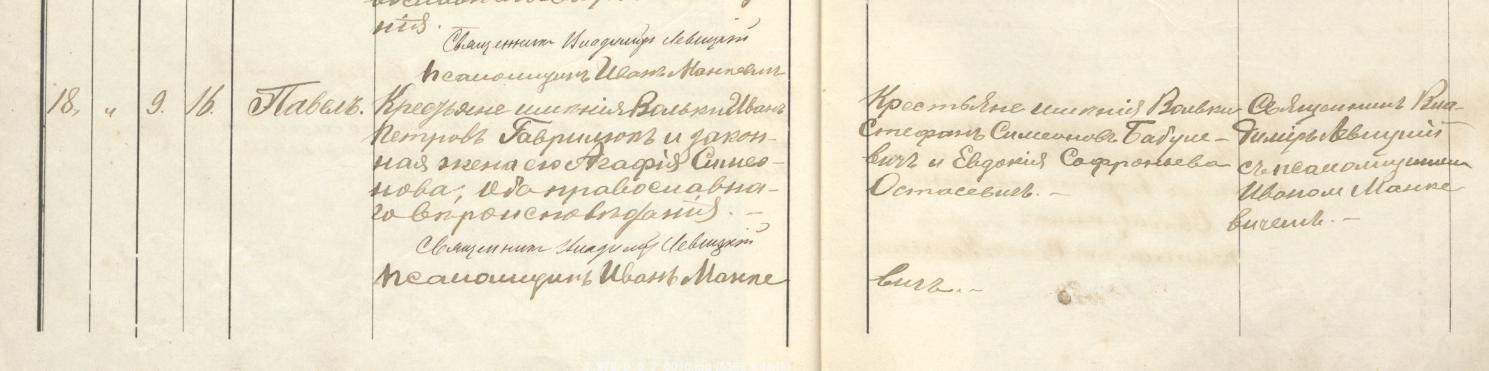 нія.
Священникъ Владиміръ Левицкій
Псаломщикъ Иванъ Манкевичъ
18. „ 9. 16. Павелъ.
Крестьяне имѣнія Вольки Иванъ
Петровъ Гаврилюкъ и закон-
ная жена его Агафія Симео-
нова; оба православна-
го вѣроисповѣданія. –
Священникъ Владиміръ Левицкій
Псаломщикъ Иванъ Манке
Крестьяне имѣнія Вольки
Стефанъ Симеоновъ Бабуле-
вичъ и Евдокія Софроніева
Остасевичъ. –
вичъ. –
Священникъ Вла-
диміръ Левицкій
съ псаломщикомъ
Иваном Манке
вичемъ. –